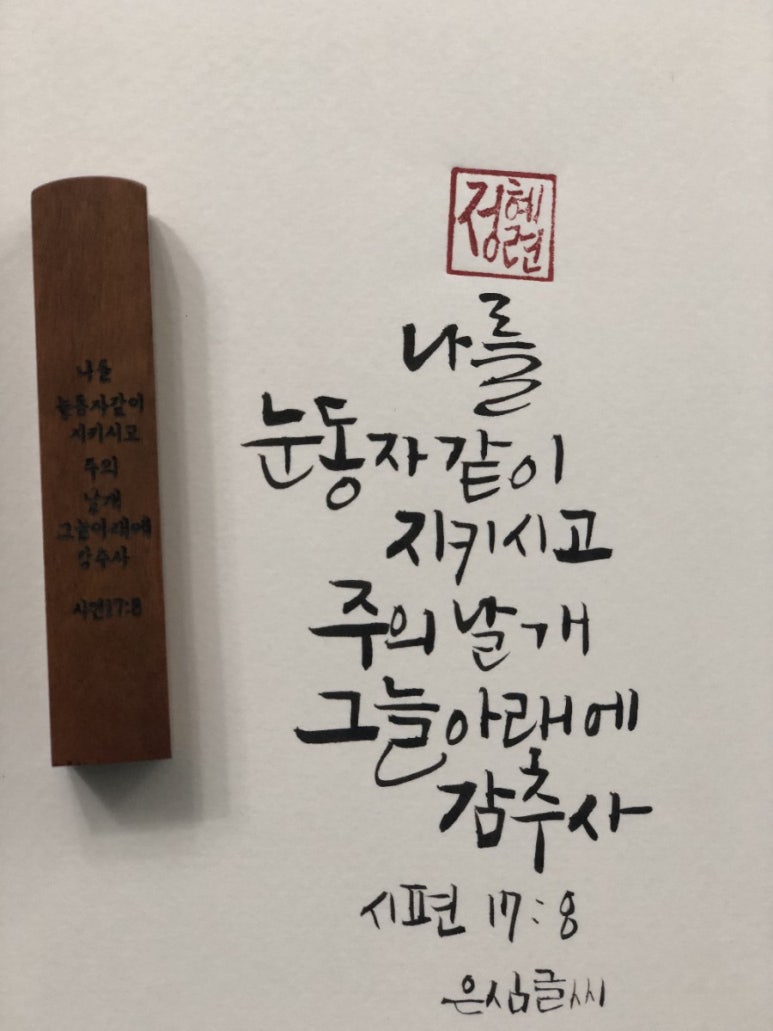 나를
눈동자같이
지키시고
주의
날개
그늘아래에
감추사
시편17:8
정혜련
나를
눈동자같이
지키시고
주의 날개
그늘아래에
감추사
시편 17:8
은심글씨